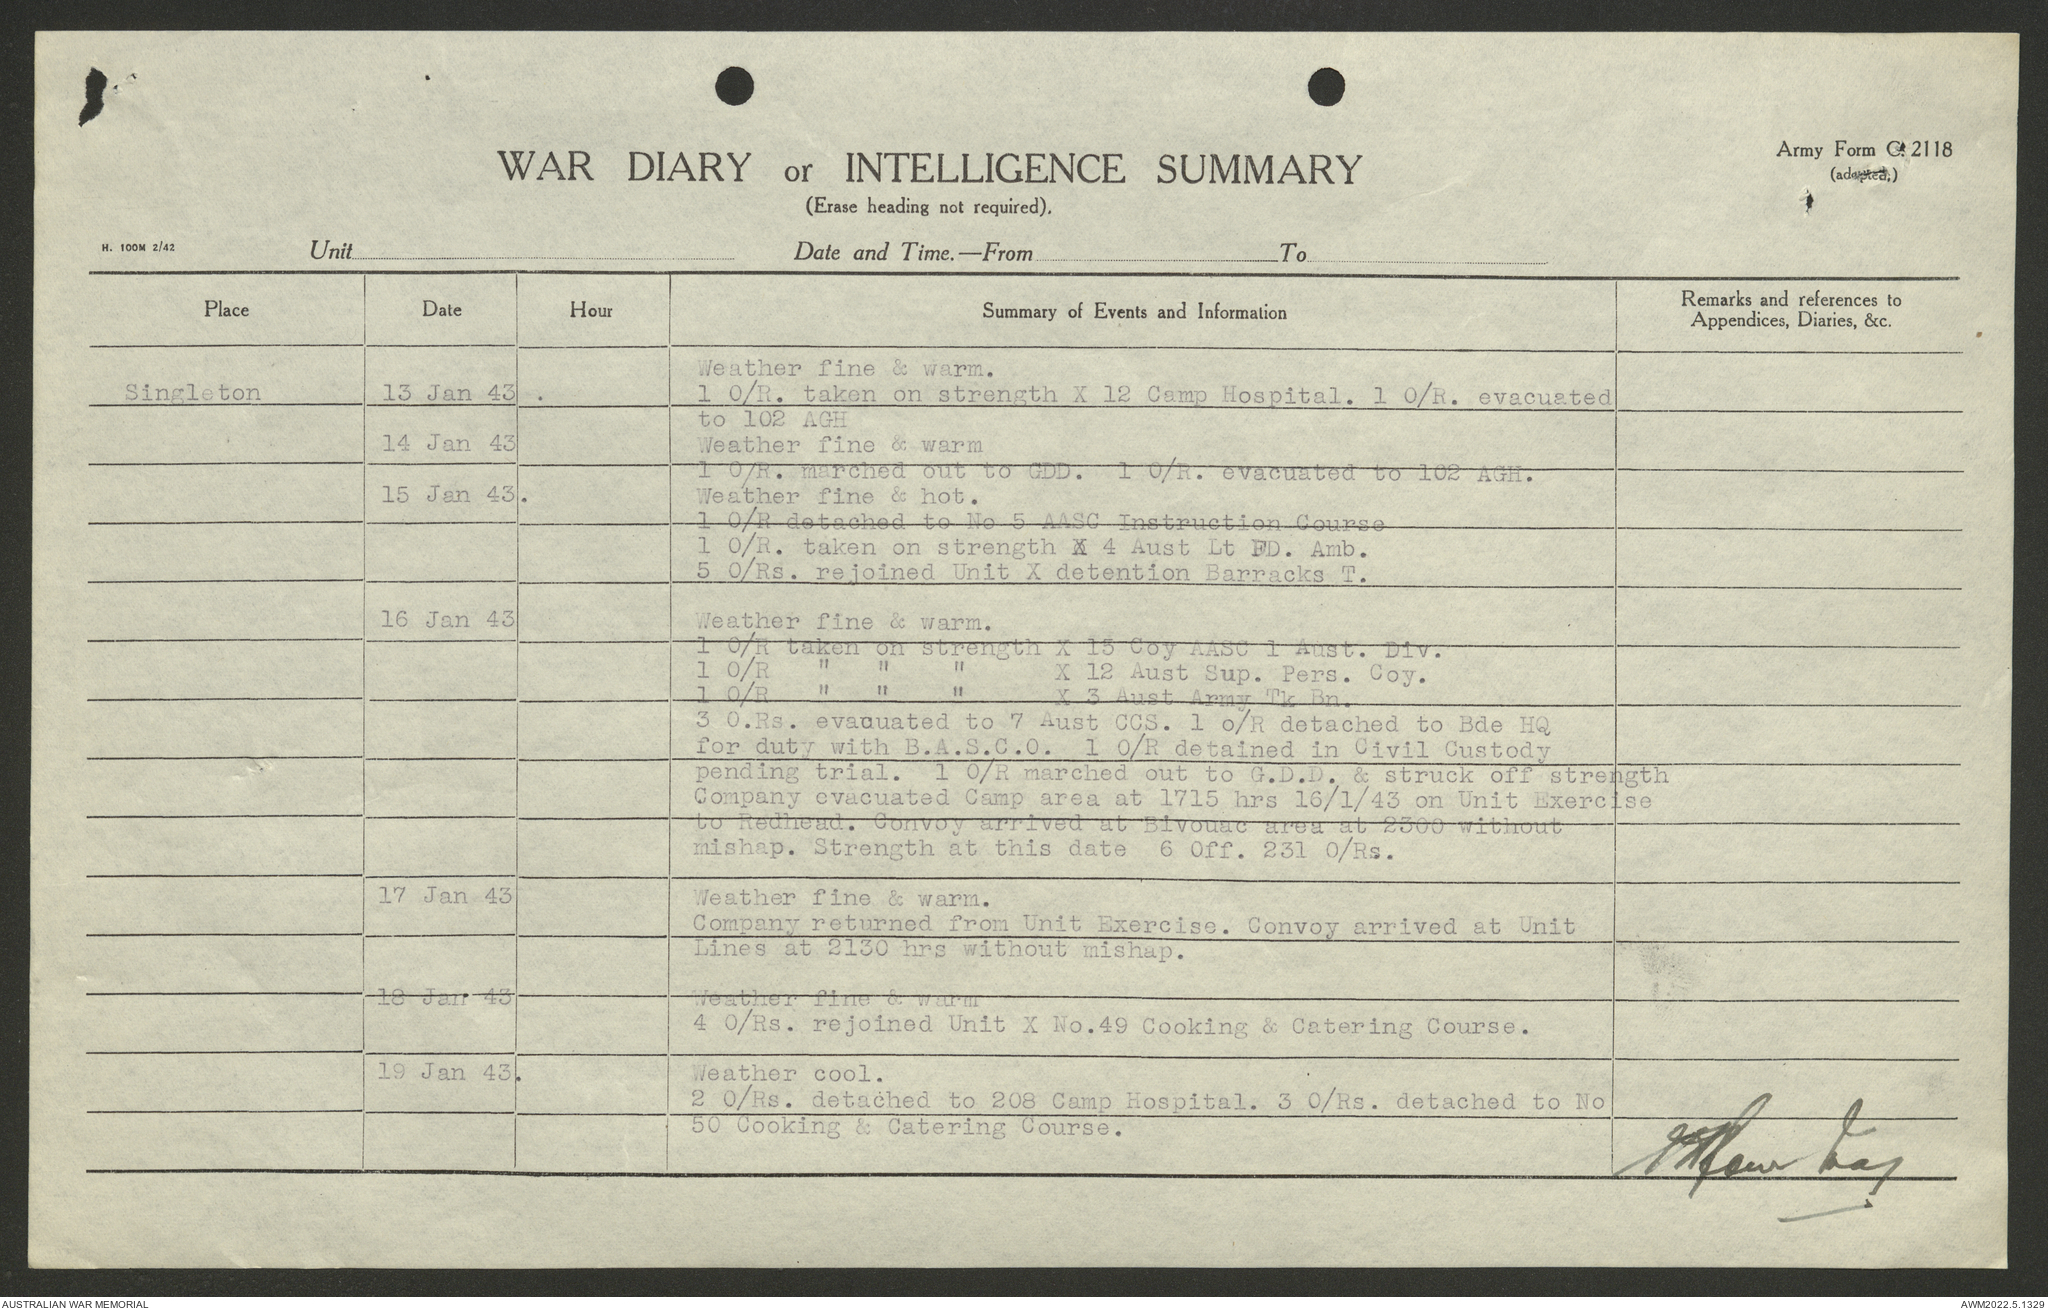 WAR DIARY or INTELLIGENCE SUMMARY
(Erase heading not required).
Army Form C. 2118
(adapted.)
H. 100M 2/42
Unit
Date and Time.—From
To
Place
Date
Hour
Summary of Events and Information
Remarks and references to
Appendices, Diaries, &c.
Weather fine & warm.
Singleton 13 Jan 43 . 1 O/R. taken on strength X 12 Camp Hospital. 1 O/R. evacuated
to 102 AGH
14 Jan 43 Weather fine & warm
1 O/R. marched out to GDD. 1 O/R. evacuated to 102 AGH.
15 Jan 43. Weather fine & hot.
1 O/R detached to No 5 AASC Instruction Course
1 O/R. taken on strength X 4 Aust Lt FD. Amb.
5 O/Rs. rejoined Unit X detention Barracks T.
16 Jan 43 Weather fine & warm.
1 O/R taken on strength X 13 Coy AASC 1 Aust. Div.
1 O/R " " " X 12 Aust Sup. Pers. Coy.
1 O/R " " " X 3 Aust Army Tk Bn.
3 O.Rs. evacuated to 7 Aust CCS. 1 o/R detached to Bde HQ
for duty with B.A.S.C.O. 1 O/R detained in Civil Custody
pending trial. 1 O/R marched out to G.D.D. & struck off strength
Company evacuated Camp area at 1715 hrs 16/1/43 on Unit Exercise
to Redhead. Convoy arrived at Bivouac area at 2300 without
mishap. Strength at this date 6 Off. 231 O/Rs.
17 Jan 43 Weather fine & warm.
Company returned from Unit Exercise. Convoy arrived at Unit
Lines at 2130 hrs without mishap.
18 Jan. 43 Weather fine & warm
4 O/Rs. rejoined Unit X No.49 Cooking & Catering Course.
19 Jan 43. Weather cool.
2 O/Rs. detached to 208 Camp Hospital. 3 O/Rs. detached to No
50 Cooking & Catering Course.
AUSTRALIAN WAR MEMORIAL
AWM2022.5.1329